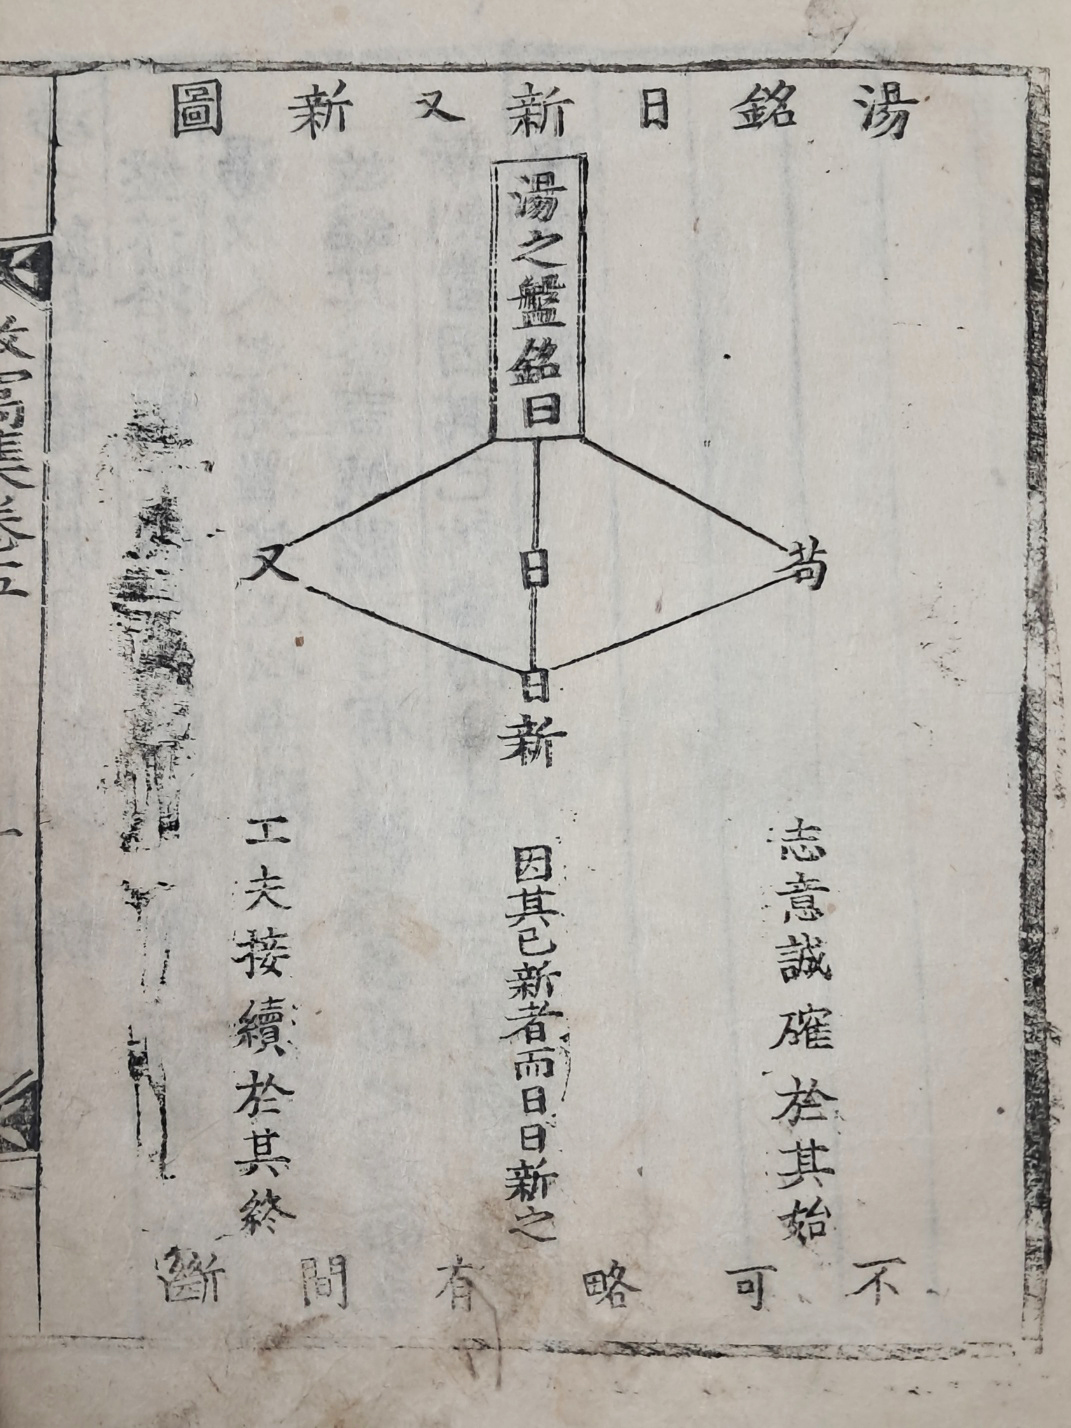 湯銘日新又新圖
湯之盤銘曰
苟
日
又
日新
志意誠確於其始
因其已新者而日日新之
工夫接續於其終
不可略有間斷
窩集卷五
一